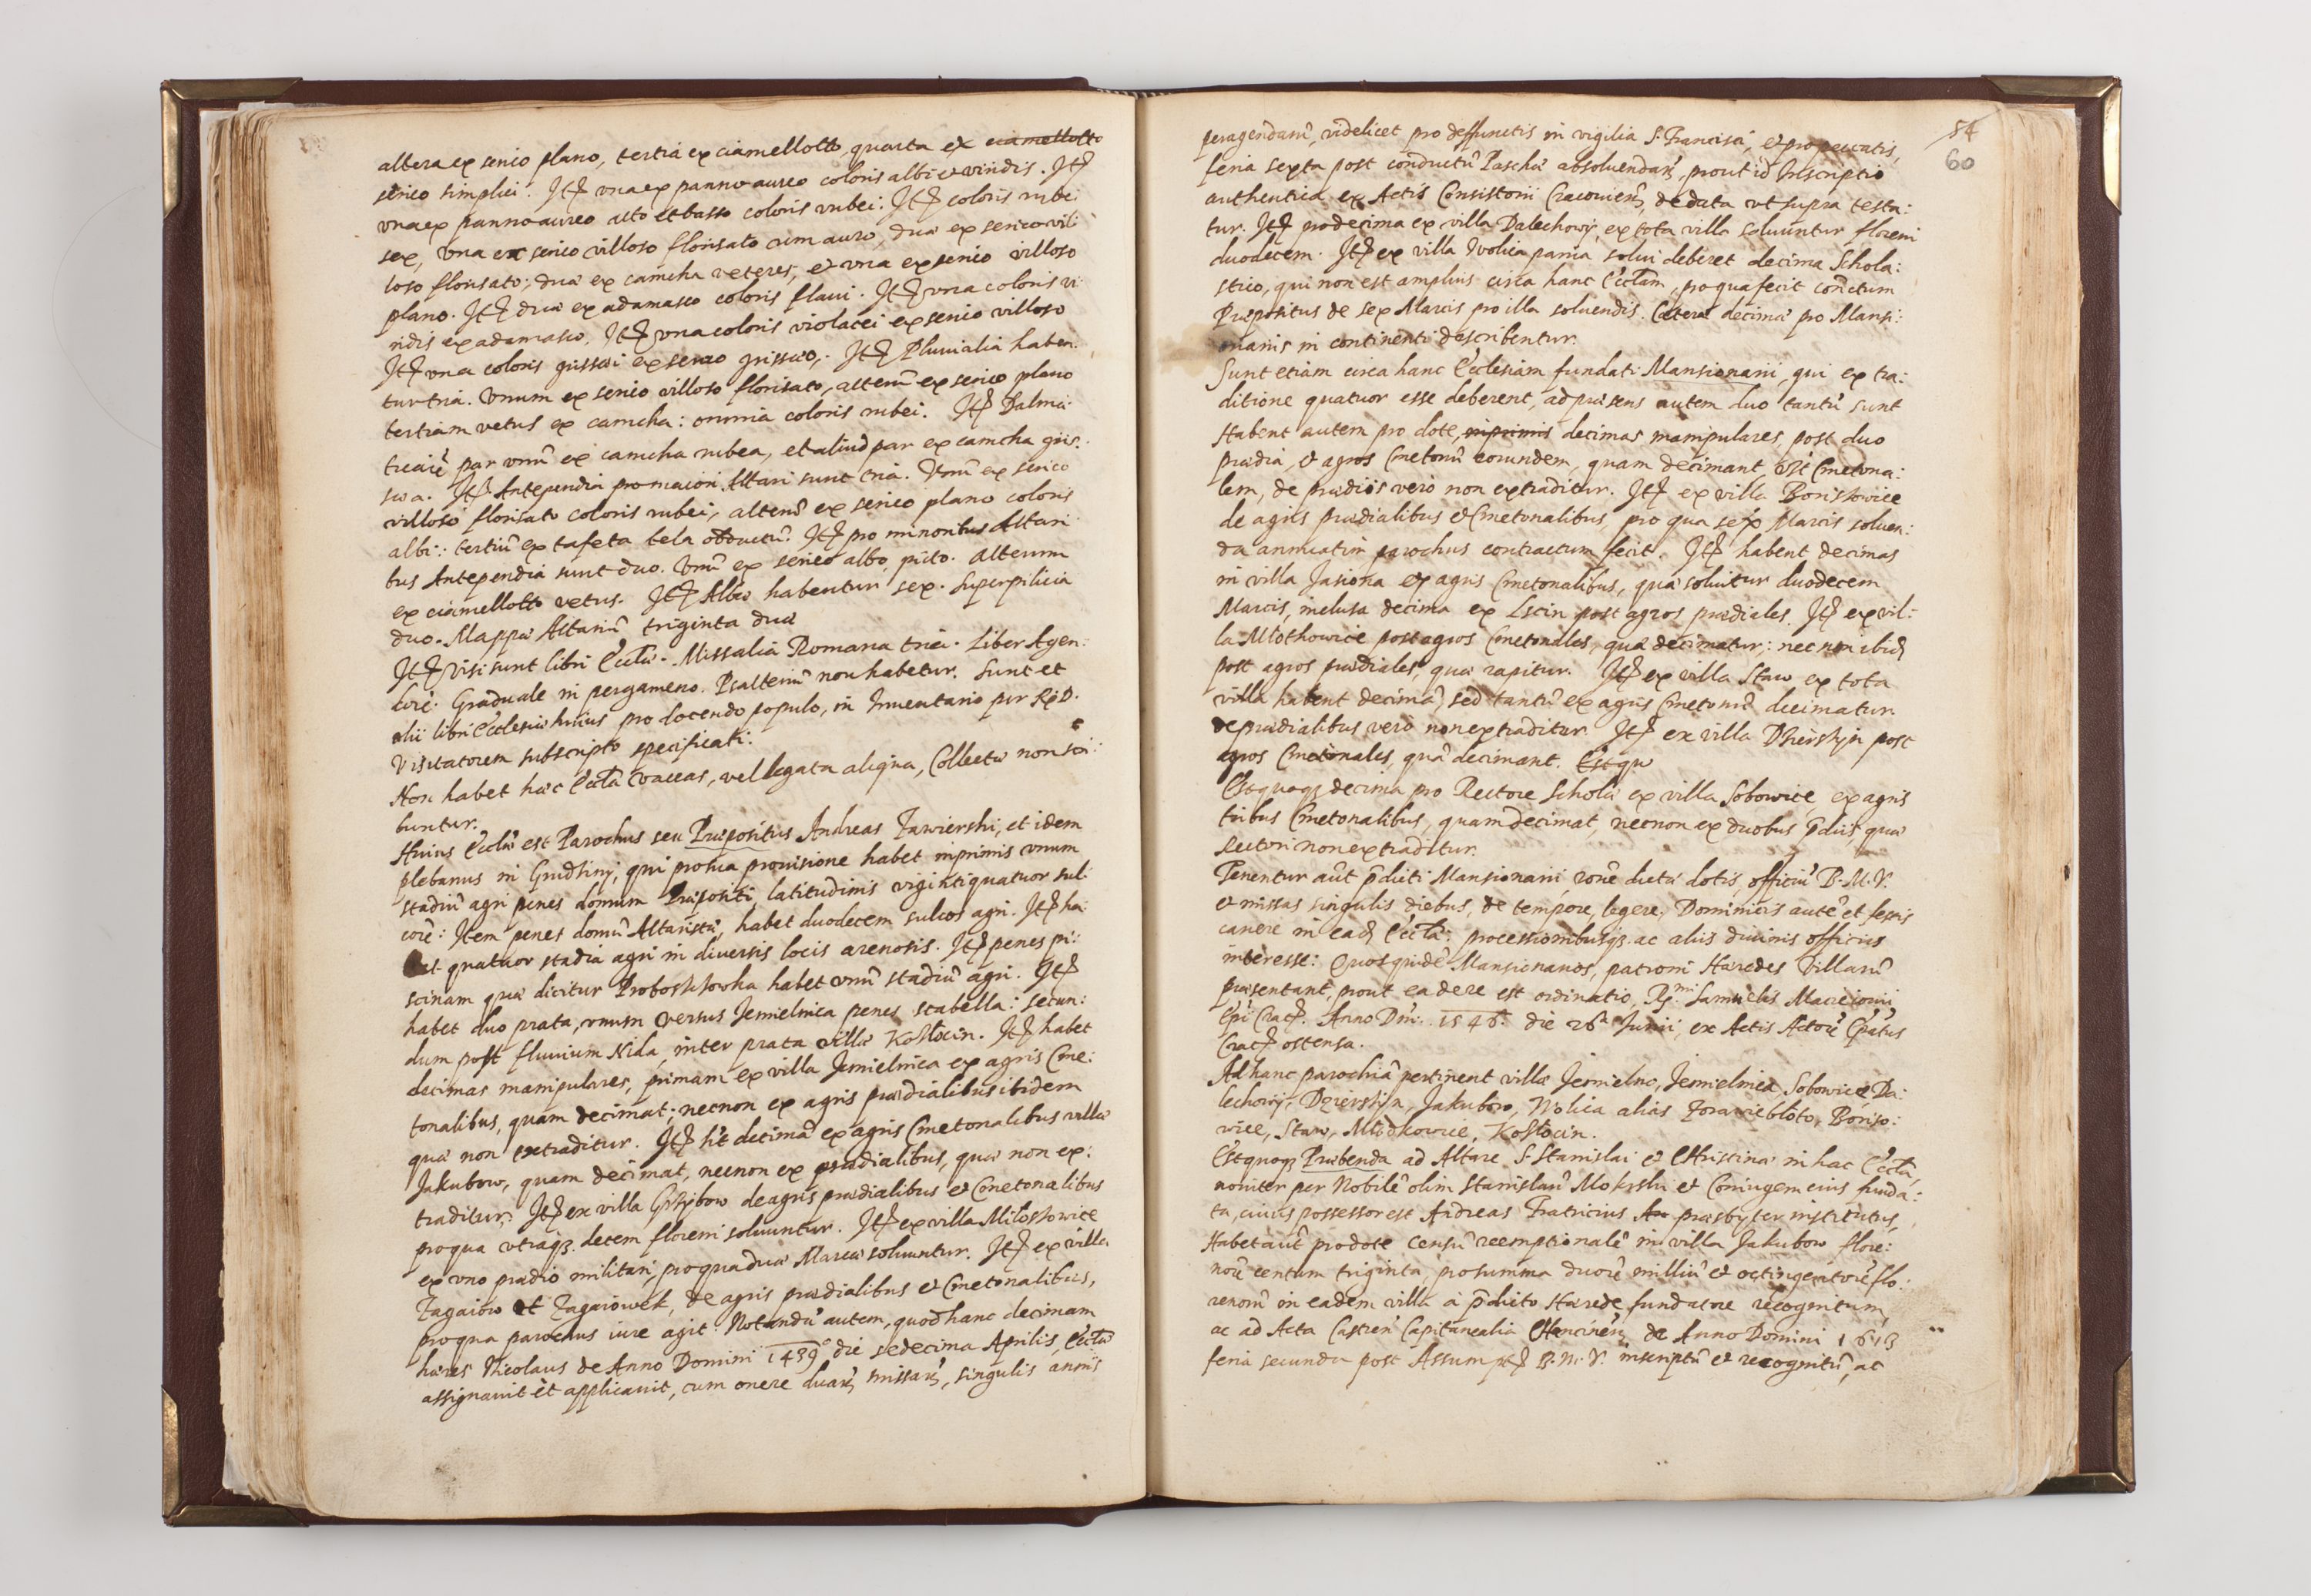 altera ex serico plano, tertia ex ciamellotto, quarta ex ciamellotto
serico simplici. Itē vna ex panno aureo coloris albi et viridis. Itē
vna ex panno aureo alto et basso coloris rubei: Itē coloris rubei
sex, vna ex serico villoso florisato cum auro, duæ ex serico vil:
loso florisato; duæ ex camcha veteres, et vna ex serico villoso
plano. Itē duæ ex adamasco coloris flaui. Itē vna coloris vi:
ridis ex adamasco. Itē vna coloris violacei ex serico villoso
Itē vna coloris grissei ex serico grisseo. Itē Pluuialia haben:
tur tria. Vnum ex serico villoso florisato, alterū ex serico plano
tertiam vetus ex camcha: omnia coloris rubei. Itē Dalma:
ticarū par vnū ex camcha rubea, et aliud par ex camcha gris:
sea. Itē Antependia pro maiori Altari sunt tria. Vnū ex serico
villoso florisato coloris rubei, alterū ex serico plano coloris
albi: tertiū ex tafeta tela obductū. Itē pro minoribus Altari:
bus Antependia sunt duo. Vnū ex serico albo, picto. alterum
ex ciamellotto vetus. Itē Albæ habentur sex. Superpilicia
duo. Mappæ Altariū triginta duæ
Itē visi sunt libri Eccłæ. Missalia Romana tria. Liber Agen:
dorū. Graduale in pergameno. Psalteriū non habetur. Sunt et
alii libri Ecclesiæ huius pro docendo populo, in Inuentario per R: D.
Visitatorem subscripto specificati.
Non habet hæc Eccła vaccas, vel legata aliqua, Collectæ non scri:
buntur.
Huius Eccłæ est Parochus seu Præpositus Andreas Zawierski, et idem
plebanus in Grudziny, qui pro sua prouisione habet inprimis vnum
stadiū agri penes domum Præpositi, latitudinis viginti quatuor sul:
corū: Item penes domū Altaristæ, habet duodecem sulcos agri. Itē ha:
bet quatuor stadia agri in diuersis locis arenosis. Itē penes pi:
scinam quæ dicitur Proboszczowka habet vnū stadiū agri. Itē
habet duo prata, vnum versus Jemielnica penes scabella: secun:
dum post fluuium Nida, inter prata villæ Kozłocin. Itē habet
decimas manipulares, primam ex villa Jemielnica ex agris Cme:
tonalibus, quam decimat; necnon ex agris prædialibus ibidem
quæ non extraditur. Itē hēt decimā ex agris Cmetonalibus villæ
Jakubow, quam decimat, necnon ex prædialibus, quæ non ex:
traditur. Itē ex villa Grzybow de agris prædialibus et Cmetonalibus
pro qua vtraq; decem floreni soluuntur. Itē ex villa Miłoszowice
ex vno prædio militari, pro qua duæ Marcæ soluuntur. Itē ex villa
Zagaiow et Zagaiowek, de agris prædialibus et Cmetonalibus,
pro qua parochus iure agit. Notandū autem, quod hanc decimam
hæres Nicolaus de Anno Domini 1439° die sedecima Aprilis, Eccłæ
assignauit et applicauit, cum onere duarū missarū, singulis annis
54
60
peragendarū, videlicet pro deffunctis in vigilia S. Francisci, et pro peccatis,
feria sexta post conductū Paschæ absoluendarū, prout id Inscriptio
authentica ex Actis Consistorii Cracouieñ, de data vt supra testa:
tur. Itē pro decima ex villa Dalechowy, ex tota villa soluuntur floreni
duodecem. Itē ex villa Wolica parua solui deberet decima Schola:
stico, qui non est amplius circa hanc Eccłam, pro qua fecit conctum
Præpositus de sex Marcis pro illa soluendis. Cæteræ decimæ pro Mansi:
onariis in continenti describentur.
Sunt etiam circa hanc Ecclesiam fundati Mansionarii, qui ex tra:
ditione quatuor esse deberent, ad præsens autem duo tantū sunt
Habent autem pro dote, inprimis decimas manipulares, post duo
prædia, et agros Cmetonū eorundem, quam decimant, vst Cmetona:
lem, de prædiis vero non extraditur. Itē ex villa Boriszowice
de agris prædialibus et Cmetonalibus, pro qua sex Marcis soluen:
da annuatim parochus contractum fecit. Itē habent decimas
in villa Jasiona ex agris Cmetonalibus, quæ soluitur duodecem
Marcis, inclusa decima ex Lscin post agros prædiales. Itē ex vil:
la Młothowice post agros Cmetonales, quæ decimatur; nec non ibid
post agros prædiales, quæ rapitur. Itē ex villa Staw ex tota
villa habent decimā, sed tantū ex agris Cmetonū decimatur.
de prædialibus vero non extraditur. Itē ex villa Dzierszyn post
agros Cmetonales, quā decimant. Est qu
Est quoq; decima pro Rectore Scholæ ex villa Sobowice ex agris
tribus Cmetonalibus, quam decimat, necnon ex duobus p̄diis, quæ
Rectori non extraditur.
Tenentur aūt p̄dicti Mansionarii, rōne dictæ dotis, officiū B. M. V.
et missas singulis diebus, de tempore, legere, Dominicis autē et festis
canere in ead Eccła: processionibusq; ac aliis diuinis officiis
interesse: Quos quidē Mansionarios, patroni Hæredes Villarū
præsentant, prout ea de re est ordinatio, Rmi Samuelis Macieiouii
Epi Crac. Anno Dni. 1546. die 26ª Junii, ex Actis Actorū Epatus
Crac ostensa.
Ad hanc parochiā pertinent villæ Jemielno, Jemielnica, Sobowice, Da:
lechowy, Dzierszyn, Jakubow, Wolica alias Zorawiebłoto, Boriso:
wice, Staw, Młodkowice, Kozłocin.
Est quoq; Præbenda ad Altare S. Stanislai et Christinæ in hac Eccła,
nouiter per Nobilē olim Stanislaū Mokrski et Coniugem eius funda:
ta, cuius possessor est Andreas Patricius An præsbyter institutus,
Habet aūt pro dote censū reemptionalē in villa Jakubow flore:
norū centum triginta, pro summa duorū milliū et octingentorū flo:
renorū in eadem villa à p̄dicto Hærede fundatore recognitum,
ac ad Acta Castreñ Capitanealia Chencineñ de Anno Domini 1613
feria secunda post Assumptē B. M. V. inscriptū et recognitū, ac